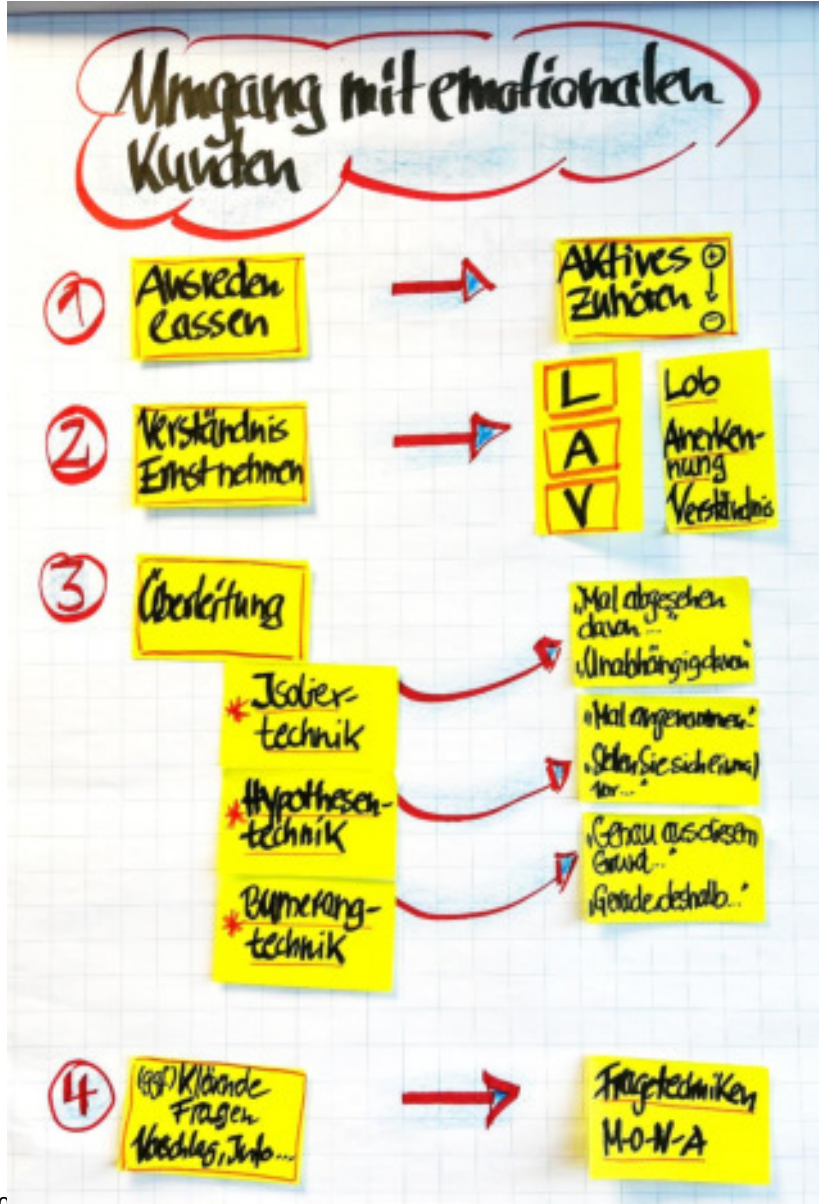 Umgang mit emotionalen
Kunden
1
Ausreden
lassen
Aktives +
Zuhören ↓
-
2
Verständnis
Ernst nehmen
L
A
V
Lob
Anerken-
nung
Verständnis
3
Überleitung
* Isolier-
technik
„Mal abgesehen
davon..."
„Unabhängig davon"
* Hypothesen-
technik
„Mal angenommen"
„Stellen Sie sich einmal
vor..."
* Bumerang-
technik
„Genau aus diesem
Grund..."
„Gerade deshalb..."
4
(ggf) Klärende
Fragen
Vorschlag, Info...
Fragetechniken
M-O-N-A